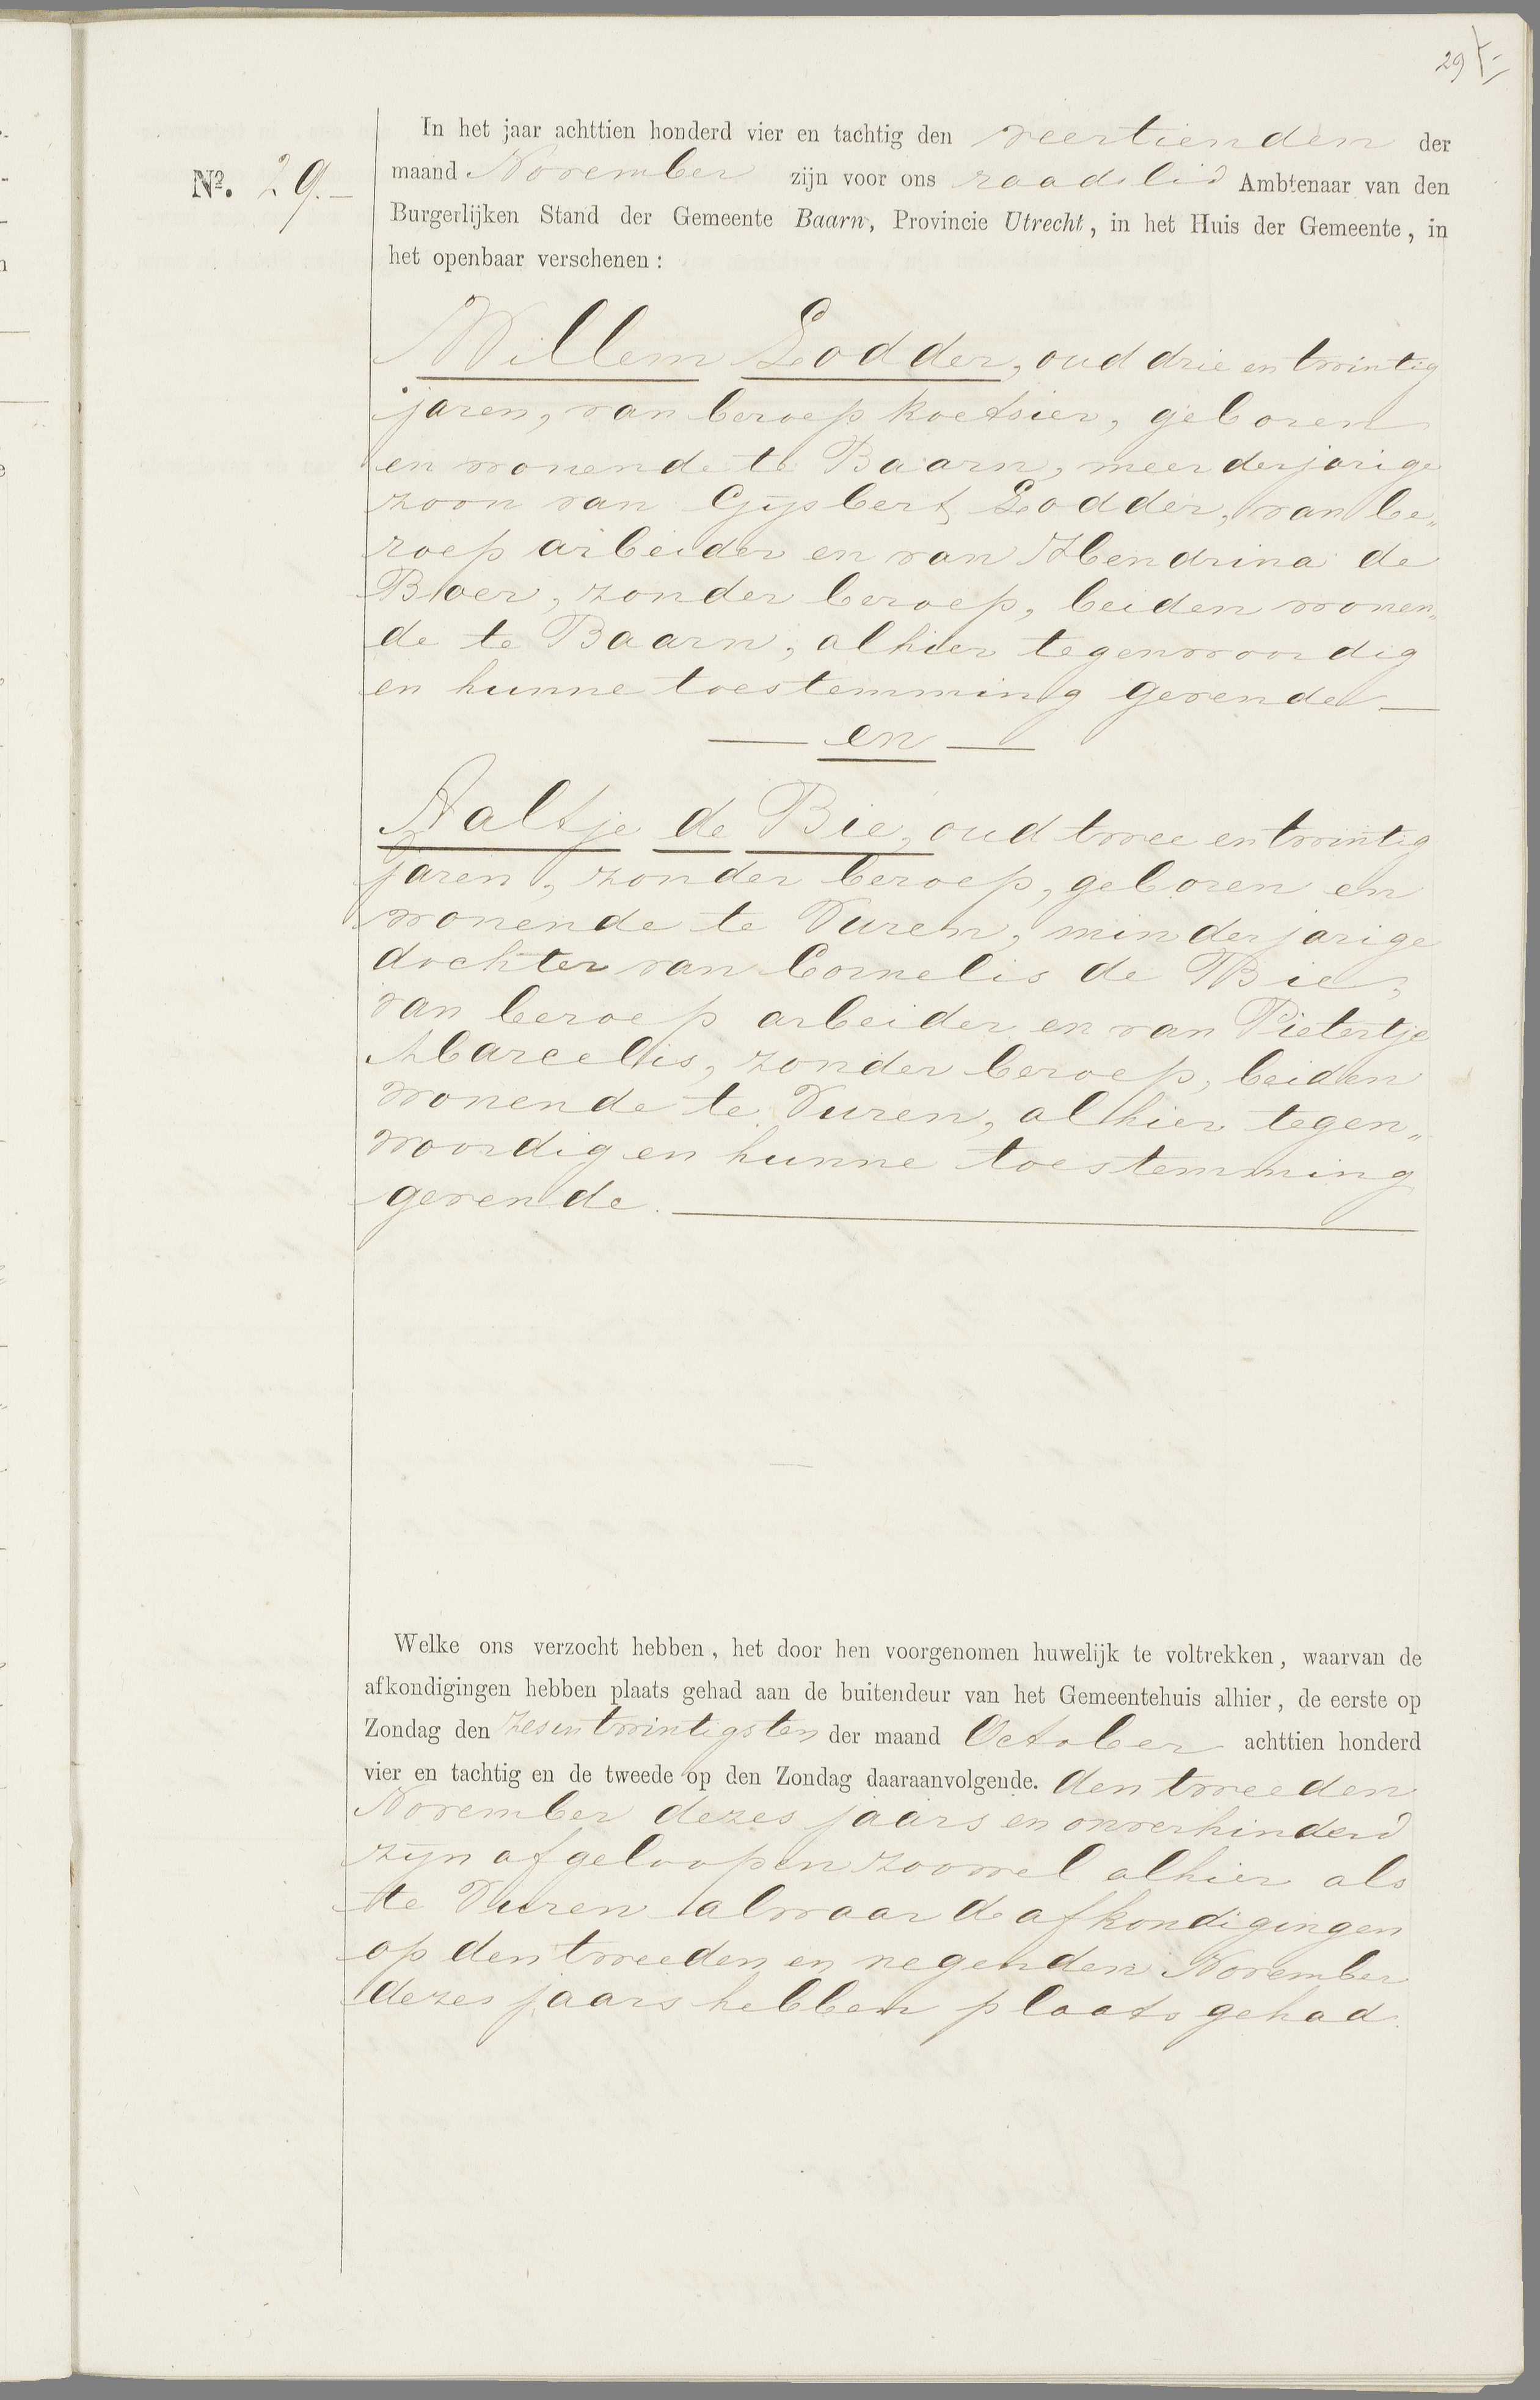 29
In het jaar achttien honderd vier en tachtig den veertienden der
Nº. 29.- maand November zijn voor ons raadslid Ambtenaar van den
Burgerlijken Stand der Gemeente Baarn, Provincie Utrecht, in het Huis der Gemeente, in
het openbaar verschenen:
Willem Lodder, oud drie en twintig
jaren, van beroep koetsier, geboren
en wonende te Baarn, meerderjarige
zoon van Gijsbert Lodder, van be„
roep arbeider en van Hendrina de
Boer, zonder beroep, beiden wonen„
de te Baarn, alhier tegenwoordig
en hunne toestemming gevende —
— en —
Aaltje de Bie, oud twee en twintig
jaren, zonder beroep, geboren en
wonende te Vuren, minderjarige
dochter van Cornelis de Bie,
van beroep arbeider en van Pietertje
Marcelis, zonder beroep, beiden
wonende te Vuren, alhier tegen„
woordig en hunne toestemming
gevende. —
Welke ons verzocht hebben, het door hen voorgenomen huwelijk te voltrekken, waarvan de
afkondigingen hebben plaats gehad aan de buitendeur van het Gemeentehuis alhier, de eerste op
Zondag den zesentwintigsten der maand October achttien honderd
vier en tachtig en de tweede op den Zondag daaraanvolgende. den tweeden
November dezes jaars en onverhinderd
zijn afgeloopen zoowel alhier als
te Vuren alwaar de afkondigingen
op den tweeden en negenden November
dezes jaars hebben plaats gehad.